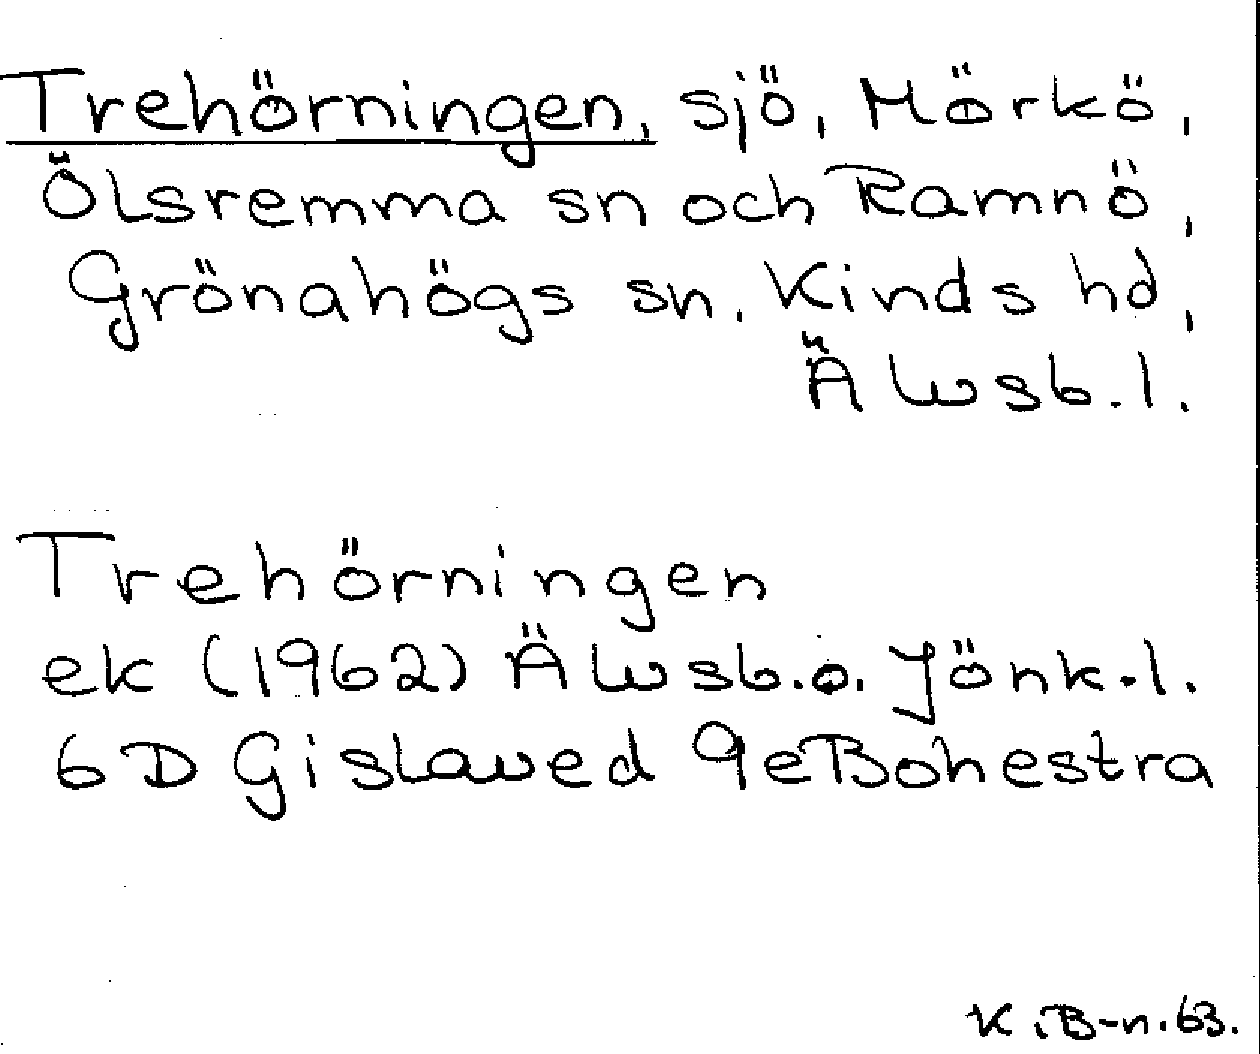 Trehörningen, sjö, Mörkö,
Ölsremma sn och Ramnö,
Grönahögs sn. Kinds hd,
Älvsb.l.
Trehörningen
ek (1962) Älvsb.o. Jönk.l.
6D Gislaved 9e Bohestra
K.B-n.63.